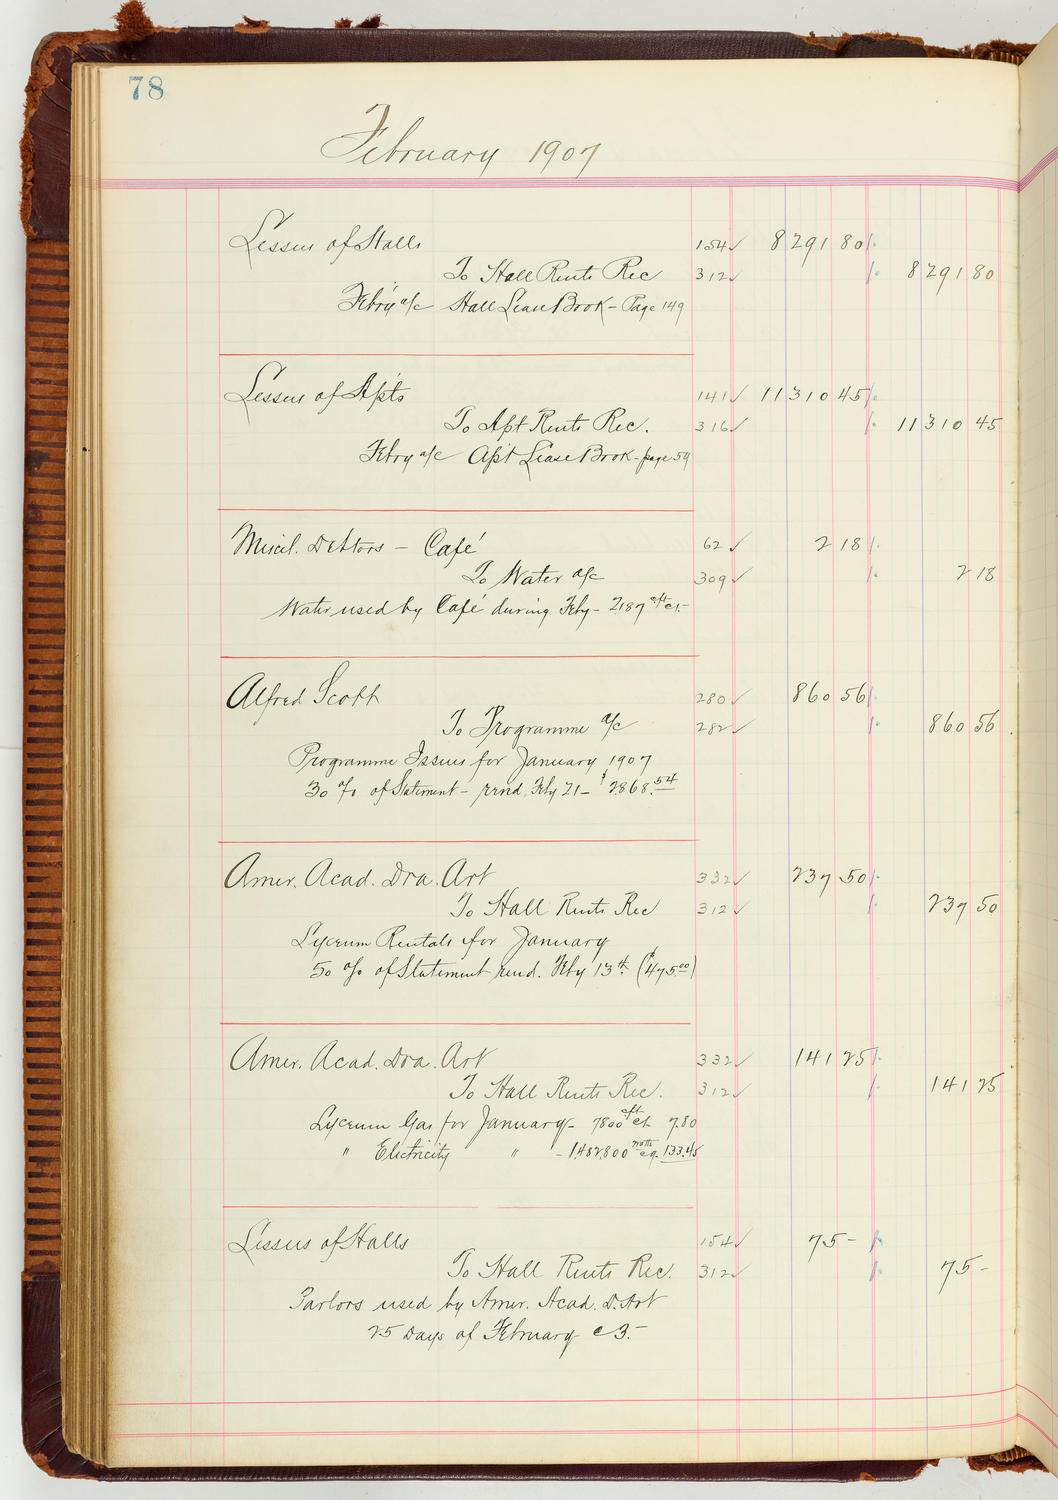 78
February 1907
Lessees of Halls 154 ✓ 8291 80
To Hall Rents Rec 312 ✓ 8291 80
Feb'y a/c Hall Lease Book - Page 149
Lessees of Ap'ts 141 ✓ 11310 45
To Apt Rents Rec. 316 ✓ 11310 45
Feb'y a/c Ap't Lease Book - page 59
Miscl. Debtors - Café 62 ✓ 2 18
To Water a/c 309 ✓ 2 18
Water used by Café during Feby - 2187 cft
Alfred Scott 280 ✓ 860 56
To Programme a/c 282 ✓ 860 56
Programme Issues for January 1907
30 % of Statement - rend. Feby 21 - $2868.54
Amer. Acad. Dra. Art 332 ✓ 237 50
To Hall Rents Rec 312 ✓ 237 50
Lyceum Rentals for January
50 % of Statement rend. Feby 13th. ($475.00)
Amer. Acad. Dra. Art 332 ✓ 141 25
To Hall Rents Rec. 312 ✓ 141 25
Lyceum Gas for January - 7800 cft 7.80
" Electricity " - 1,482,800 watts 133.45
Lessees of Halls 154 ✓ 75 -
To Hall Rents Rec. 312 ✓ 75 -
Parlors used by Amer. Acad. D. Art
25 Days of February @ 3.-